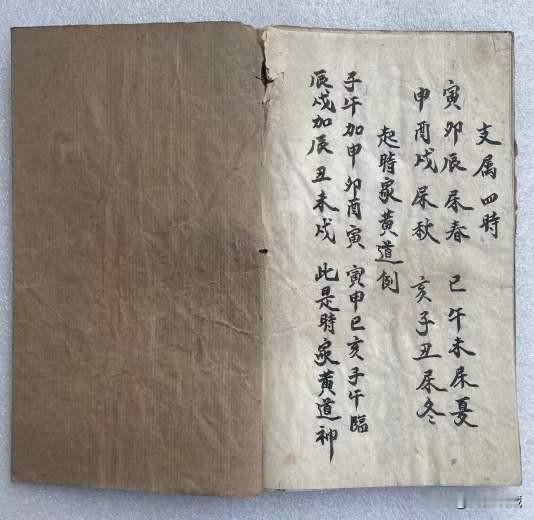 支属四時
寅卯辰属春 巳午未属夏
申酉戌属秋 亥子丑属冬
起時家黄道例
子午加申卯酉寅 寅申巳亥子午臨
辰戌加辰丑未戌 此是時家黄道神